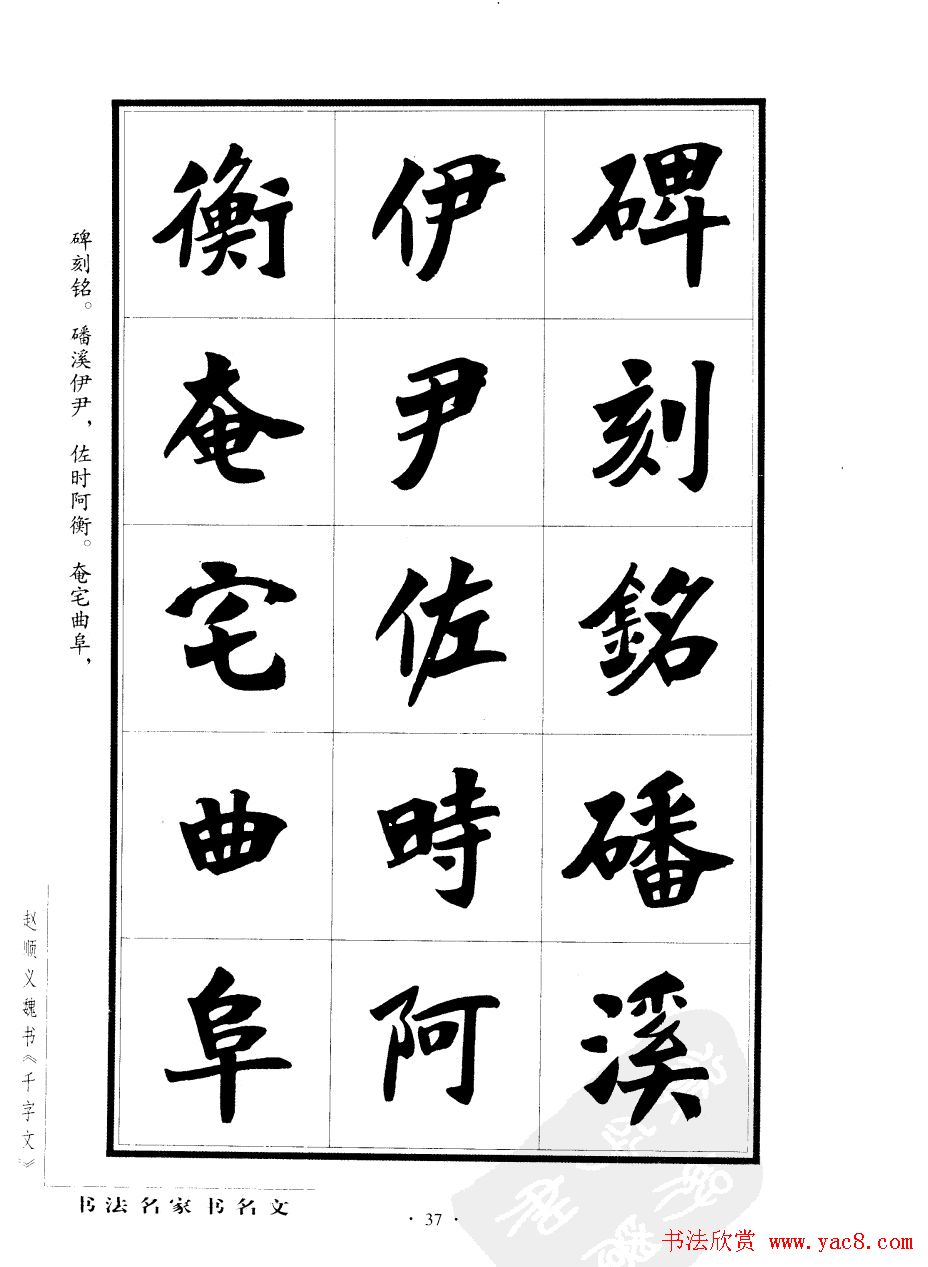 碑刻銘磻溪
伊尹佐時阿
衡奄宅曲阜
碑刻铭。磻溪伊尹，佐时阿衡。奄宅曲阜，
赵顺义魏书《千字文》
书法名家书名文
·37·
书法欣赏 www.yac8.com